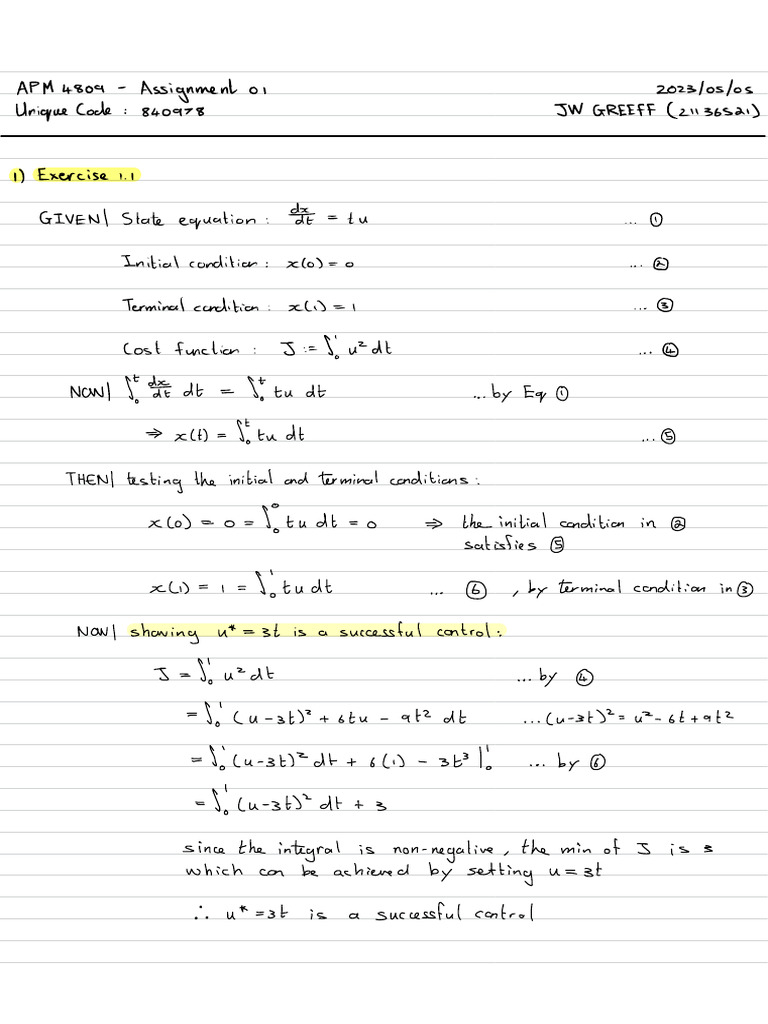 APM 4809 - Assignment 01 2023/05/05
Unique Code : 840978 JW GREEFF (21136521)
1) Exercise 1.1
GIVEN| State equation : dx/dt = tu ... ①
Initial condition : x(0) = 0 ... ②
Terminal condition : x(1) = 1 ... ③
Cost function : J := ∫₀¹ u² dt ... ④
NOW| ∫₀ᵗ dx/dt dt = ∫₀ᵗ tu dt ... by Eq ①
⇒ x(t) = ∫₀ᵗ tu dt ... ⑤
THEN| testing the initial and terminal conditions :
x(0) = 0 = ∫₀⁰ tu dt = 0 ⇒ the initial condition in ②
satisfies ⑤
x(1) = 1 = ∫₀¹ tu dt ... ⑥ , by terminal condition in ③
NOW| showing u* = 3t is a successful control :
J = ∫₀¹ u² dt ... by ④
= ∫₀¹ (u-3t)² + 6tu - 9t² dt ... (u-3t)² = u² - 6t + 9t²
= ∫₀¹ (u-3t)² dt + 6(1) - 3t³ |₀¹ ... by ⑥
= ∫₀¹ (u-3t)² dt + 3
since the integral is non-negative, the min of J is 3
which can be achieved by setting u = 3t
∴ u* = 3t is a successful control